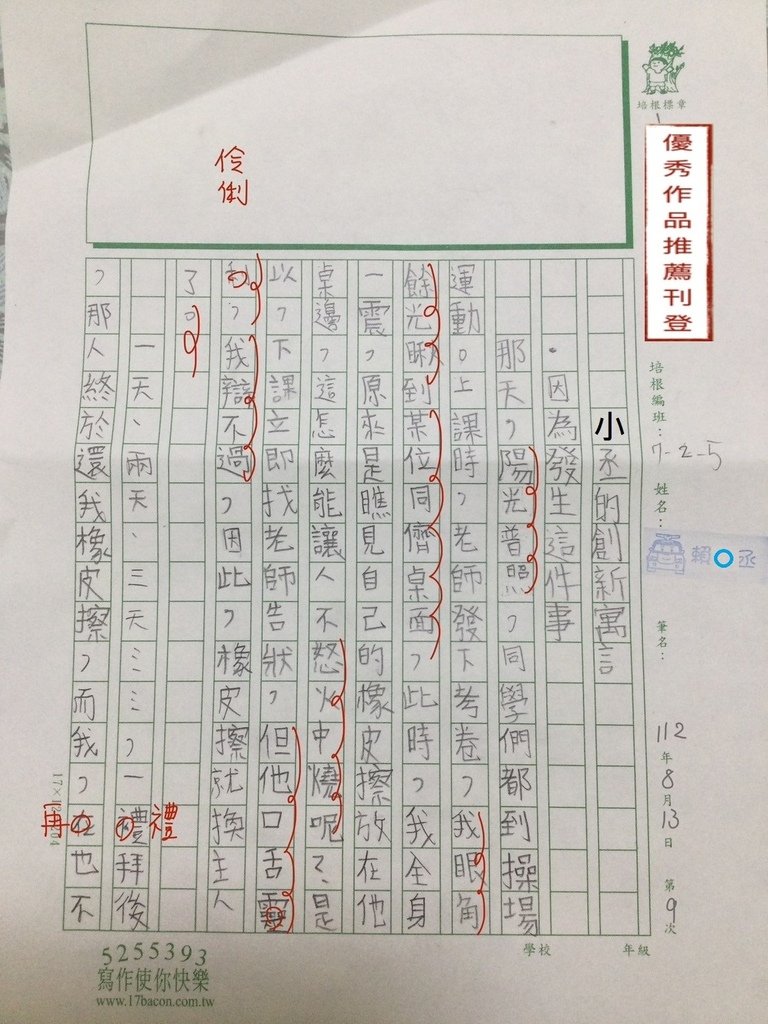 培根標章
優秀作品推薦刊登
培根編班：7-2-5
姓名：
賴○丞
筆名：
112年8月13日 第9次
年級
學校
小丞的創新寓言
·因為發生這件事
那天，陽光普照，同學們都到操場
運動。上課時，老師發下考卷，我眼角
餘光瞅到某位同儕桌面，此時，我全身
一震，原來是瞧見自己的橡皮擦放在他
桌邊，這怎麼能讓人不怒火中燒呢？是
以，下課立即找老師告狀，但他口舌靈
利，我辯不過，因此，橡皮擦就換主人
了。
一天、兩天、三天……，一禮拜後
，那人終於還我橡皮擦，而我，在也不
伶俐
禮
再
17×12=204
5255393
寫作使你快樂
www.17bacon.com.tw